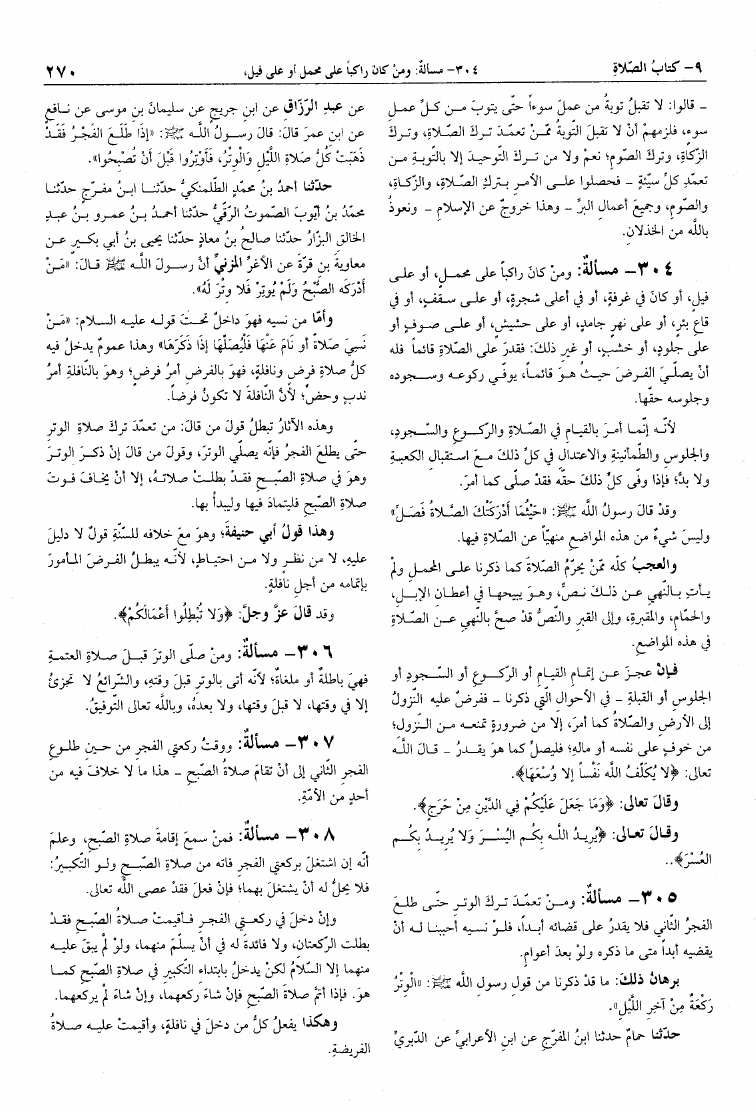 ٩- كتابُ الصّلاةِ
٣٠٤- مسألةٌ: ومنْ كان راكباً على محملٍ أو على فيلٍ،
٢٧٠
- قالوا: لا تقبلُ توبةُ من عملَ سوءاً حتّى يتوبَ مـن كـلِّ عمـلِ
سوءٍ، فلزمهمْ أنْ لا تقبلَ التّوبةُ ممّـنْ تعمّـدَ تـركَ الصّـلاةِ، وتـركَ
الزّكاةِ، وتركَ الصّومِ؛ نعمْ ولا من تـركَ التّوحيـدَ إلا بالتّوبـةِ مـن
تعمّدِ كلِّ سيّئةٍ - فحصلوا علـى الأمـرِ بـتركِ الصّـلاةِ، والزّكـاةِ،
والصّومِ، وجميعِ أعمالِ البرِّ - وهذا خروجٌ عن الإسلامِ - ونعوذُ
باللّه من الخذلانِ.
٣٠٤- مسألةٌ: ومنْ كانَ راكباً على محمـلٍ، أو علـى
فيلٍ، أو كانَ في غرفةٍ، أو في أعلى شجرةٍ، أو علـى سـقفٍ، أو في
قاعِ بئرٍ، أو على نهرٍ جامدٍ، أو على حشيشٍ، أو علـى صـوفٍ أو
على جلودٍ، أو خشبٍ، أو غيرِ ذلكَ: فقدرَ على الصّلاةِ قائماً فله
أنْ يصلّيَ الفـرضَ حيـثُ هـوَ قائمـاً، يوفّـي ركوعـه وسـجوده
وجلوسه حقّها.
لأنّـه إنّمـا أمـرَ بالقيـامِ في الصّـلاةِ والرّكـوعِ والسّـجودِ،
والجلوسِ والطّمأنينةِ والاعتدالِ في كلِّ ذلكَ مـعَ استقبالِ الكعبةِ
ولا بدَّ؛ فإذا وفّى كلَّ ذلكَ حقّه فقدْ صلّى كما أمرَ.
وقدْ قالَ رسولُ اللّه ﷺ: «حَيْثُمَا أَدْرَكَتْكَ الصَّلاةُ فَصَلِّ»
وليسَ شيءٌ من هذه المواضعِ منهيّاً عن الصّلاةِ فيها.
والعجبُ كلّه ممّنْ يحرّمُ الصّلاةَ كما ذكرنا علـى المحملِ ولمْ
يـأتِ بـالنّهيِ عـن ذلـكَ نـصٌّ، وهـوَ يبيحهـا في أعطـانِ الإبـلِ،
والحمّامِ، والمقبرةِ، وإلى القبرِ والنّصُّ قدْ صحَّ بالنّهيِ عـن الصّـلاةِ
في هذه المواضعِ.
فـإنْ عجـزَ عـن إتمـامِ القيـامِ أو الرّكـوعِ أو السّـجودِ أو
الجلوسِ أو القبلةِ - في الأحوالِ الّتي ذكرنا - ففرضٌ عليه النّزولُ
إلى الأرضِ والصّلاةُ كما أمرَ، إلا من ضرورةٍ تمنعـه مـن الـنّزولِ؛
من خوفٍ على نفسه أو مالهِ؛ فليصلِّ كما هوَ يقـدرُ - قـالَ اللّـه
تعالى: ﴿لا يُكَلِّفُ اللّه نَفْساً إلا وُسْعَهَا﴾.
وقالَ تعالى: ﴿وَمَا جَعَلَ عَلَيْكُمْ فِي الدِّينِ مِنْ حَرَجٍ﴾.
وقـالَ تعـالى: ﴿يُرِيـدُ اللّـه بِكُـمْ اليُسْـرَ وَلا يُرِيـدُ بِكُـمْ
العُسْرَ﴾..
٣٠٥- مسألةٌ: ومـنْ تعمّـدَ تـركَ الوتـرِ حتّـى طلـعَ
الفجرُ الثّاني فلا يقدرُ على قضائه أبـداً، فلـوْ نسيه أحببنـا لـه أنْ
يقضيه أبداً متى ما ذكره ولوْ بعدَ أعوامٍ.
برهانُ ذلكَ: ما قدْ ذكرنا من قولِ رسولِ اللّه ﷺ: «الْوِتْرُ
رَكْعَةٌ مِنْ آخِرِ اللَّيْلِ».
حدّثنا حمامٌ حدثنا ابنُ المفرّجِ عن ابنِ الأعرابيِّ عن الدّبريِّ
عن عبدِ الرّزّاقِ عن ابنِ جريجٍ عن سليمانَ بنِ موسى عن نـافعٍ
عن ابنِ عمرَ قالَ: قالَ رسـولُ اللّـه ﷺ: «إذَا طَلَـعَ الفَجْـرُ فَقَـدْ
ذَهَبَتْ كُلُّ صَلاةِ اللَّيْلِ وَالْوِتْرُ، فَأَوْتِرُوا قَبْلَ أَنْ تُصْبِحُوا».
حدّثنا أحمدُ بنُ محمّدٍ الطّلمنكيُّ حدّثنـا ابـنُ مفـرّجٍ حدّثنـا
محمّدُ بنُ أيّوبَ الصّموتُ الرّقّيُّ حدّثنا أحمـدُ بـنُ عمـرو بـنُ عبدِ
الخالقِ البزّارُ حدّثنا صالحُ بنُ معاذٍ حدّثنا يحيى بنُ أبي بكـيرٍ عـن
معاويةَ بنِ قرّةَ عن الأغرِّ المزنيِّ أنَّ رسـولَ اللّـه ﷺ قـالَ: «مَـنْ
أَدْرَكَه الصُّبْحُ وَلَمْ يُوتِرْ فَلا وِتْرَ لَهُ».
وأمّا من نسيه فهوَ داخلٌ تحـتَ قولـه عليـه السـلام: «مَـنْ
نَسِيَ صَلاةً أَوْ نَامَ عَنْهَا فَلْيُصَلِّهَا إذَا ذَكَرَهَا» وهذا عمومٌ يدخلُ فيه
كلُّ صلاةِ فرضٍ ونافلةٍ، فهوَ بالفرضِ أمرُ فرضٍ؛ وهوَ بالنّافلةِ أمرُ
ندبٍ وحضٍّ؛ لأنَّ النّافلةَ لا تكونُ فرضاً.
وهذه الآثارُ تبطلُ قولَ من قالَ: من تعمّدَ تركَ صلاةِ الوترِ
حتّى يطلعَ الفجرُ فإنّه يصلّي الوترَ، وقولَ من قالَ إنْ ذكـرَ الوتـرَ
وهوَ في صلاةِ الصّبـحِ فقـدْ بطلـتْ صلاتـهُ، إلا أنْ يخـافَ فـوتَ
صلاةِ الصّبحِ فليتمادَ فيها وليبدأ بها.
وهـذا قولُ أبي حنيفةَ؛ وهوَ معَ خلافه للسّنّةِ قولٌ لا دليلَ
عليهِ، لا من نظرٍ ولا مـن احتيـاطٍ، لأنّـه يبطـلُ الفـرضَ المـأمورَ
بإتمامه من أجلِ نافلةٍ.
وقد قالَ عزَّ وجلَّ: ﴿وَلا تُبْطِلُوا أَعْمَالَكُمْ﴾.
٣٠٦- مسألةٌ: ومنْ صلّى الوترَ قبـلَ صلاةِ العتمـةِ
فهيَ باطلةٌ أو ملغاةٌ؛ لأنّه أتى بالوترِ قبلَ وقتهِ، والشّرائعُ لا تجزئُ
إلا في وقتها، لا قبلَ وقتها، ولا بعدهُ، وباللّه تعالى التّوفيقُ.
٣٠٧- مسألةٌ: ووقتُ ركعتي الفجرِ من حـينِ طلـوعِ
الفجرِ الثّاني إلى أنْ تقامَ صلاةُ الصّبحِ - هذا ما لا خلافَ فيه من
أحدٍ من الأمّةِ.
٣٠٨- مسألةٌ: فمنْ سمعَ إقامةَ صلاةِ الصّبحِ، وعلمَ
أنّه إن اشتغلَ بركعتي الفجرِ فاته من صلاةِ الصّبـحِ ولـو التّكبـيرُ:
فلا يحلُّ له أنْ يشتغلَ بهما؛ فإنْ فعلَ فقدْ عصى اللّه تعالى.
وإنْ دخلَ في ركعـتي الفجـرِ فـأقيمتْ صـلاةُ الصّبـحِ فقـدْ
بطلت الرّكعتان، ولا فائدةَ له في أنْ يسلّمَ منهما، ولوْ لمْ يبقَ عليـه
منهما إلا السّلامُ لكنْ يدخلُ بابتداءِ التّكبيرِ في صلاةِ الصّبحِ كمـا
هوَ. فإذا أتمَّ صلاةَ الصّبحِ فإنْ شاءَ ركعهما، وإنْ شاءَ لمْ يركعهما.
وهكذا يفعلُ كلُّ من دخلَ في نافلةٍ، وأقيمتْ عليـه صـلاةُ
الفريضةِ.